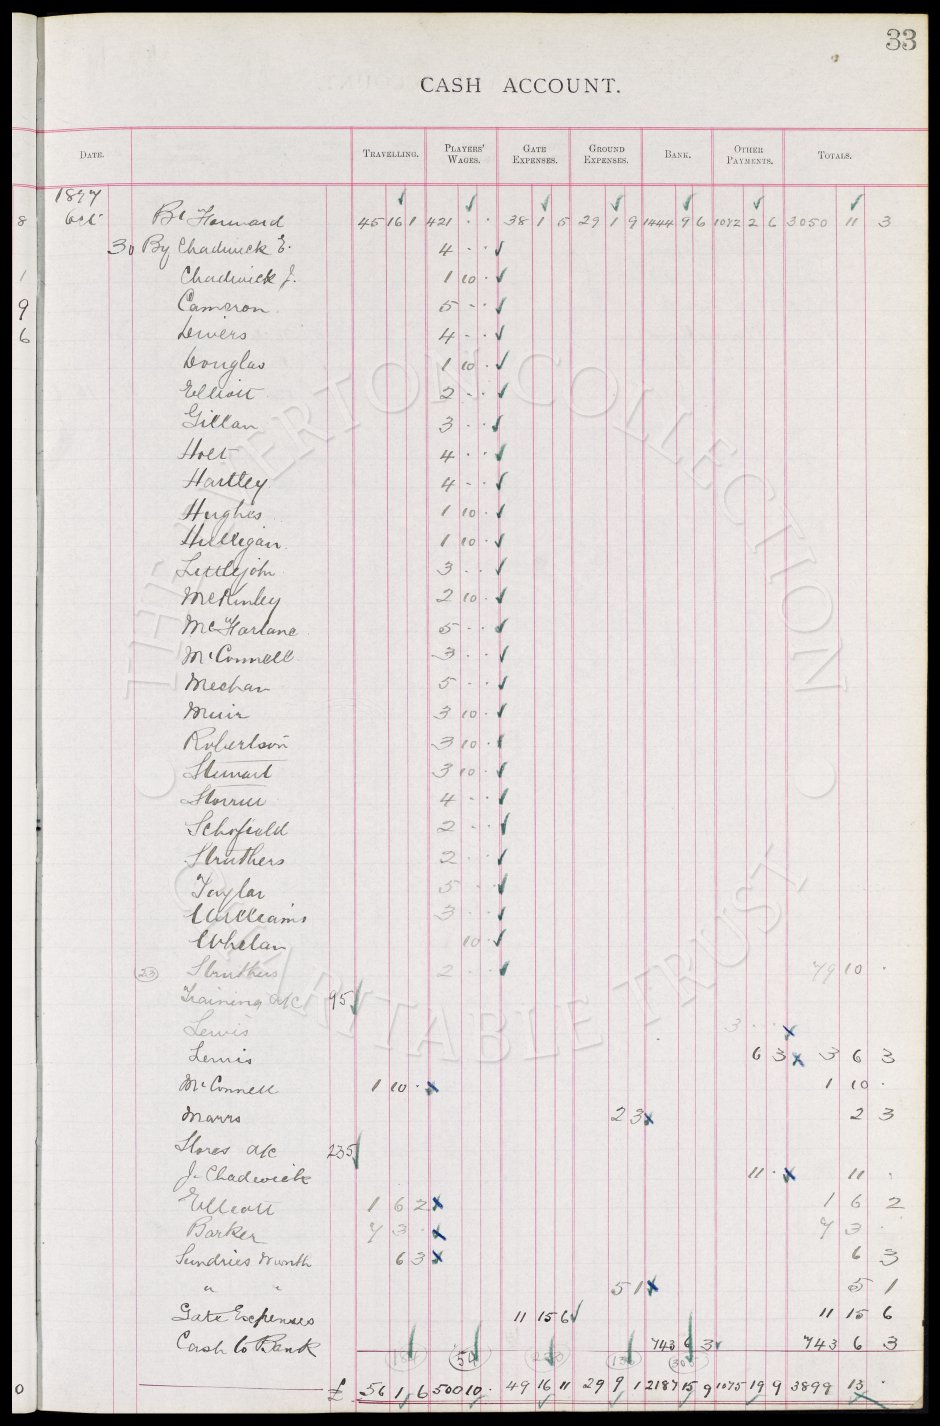 33
CASH ACCOUNT.
DATE. TRAVELLING. PLAYERS' WAGES. GATE EXPENSES. GROUND EXPENSES. BANK. OTHER PAYMENTS. TOTALS.
1897
8 Oct Bt Forward 45 16 1 421 . . 38 1 5 29 1 9 1444 9 6 1072 2 6 3050 11 3
30 By Chadwick E. 4 . .
1 Chadwick J. 1 10 .
9 Cameron 5 . .
6 Divers 4 . .
Douglas 1 10 .
Elliott 2 . .
Gillan 3 . .
Holt 4 . .
Hartley 4 . .
Hughes 1 10 .
Hulligan 1 10 .
Littlejohn 3 . .
McKinley 2 10 .
McFarlane 5 . .
McConnell 3 . .
Meehan 5 . .
Muir 3 10 .
Robertson 3 10 .
Stewart 3 10 .
Storrier 4 . .
Schofield 2 . .
Struthers 2 . .
Taylor 5 . .
Williams 3 . .
Whelan 10 .
23 Struthers 2 . . 79 10 .
Training a/c 95
Lewis 3 . .
Lewis 6 3 3 6 3
McConnell 1 10 . 1 10 .
Marrs 2 3 2 3
Stores a/c 235
J. Chadwick 11 . 11 .
Elliott 1 6 2 1 6 2
Barker 7 3 . 7 3 .
Sundries Month 6 3 6 3
" " 5 1 5 1
Gate Expenses 11 15 6 11 15 6
Cash to Bank 743 6 3 743 6 3
0 £ 56 1 6 500 10 . 49 16 11 29 9 1 2187 15 9 1075 19 9 3899 13 .
THE EVERTON COLLECTION
CHARITABLE TRUST